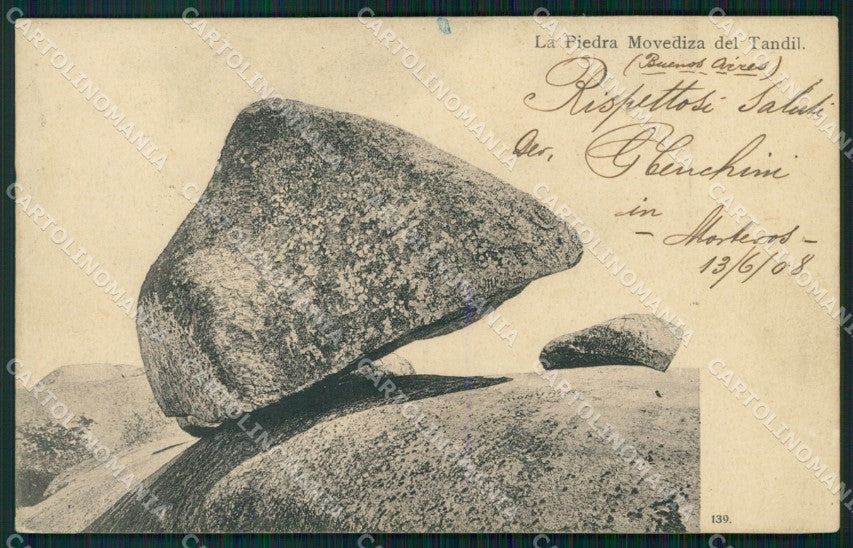 La Piedra Movediza del Tandil.
(Buenos Aires)
Rispettosi Saluti
Dev.
in
- Morteros -
13/6/08
139.
CARTOLINOMANIA